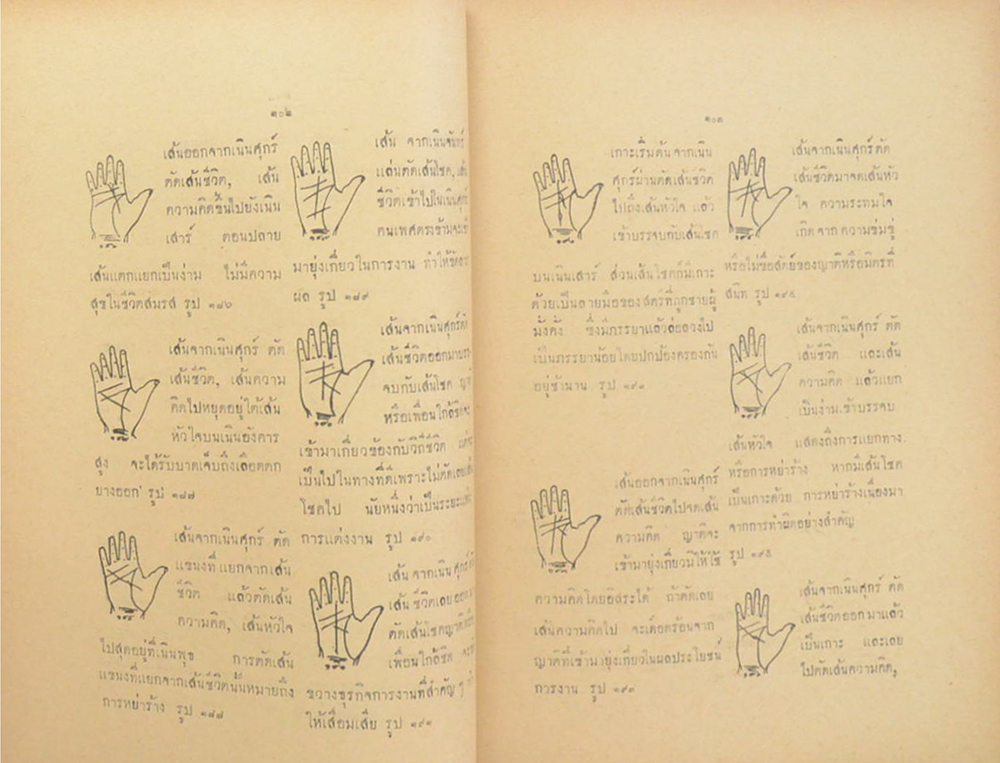 ๑๐๒
เส้นออกจากเนินศุกร์
ตัดเส้นชีวิต, เส้น
ความคิดขึ้นไปยังเนิน
เสาร์ ตอนปลาย
เส้นแตกแยกเป็นง่าม ไม่มีความ
สุขในชีวิตสมรส รูป ๑๘๖
เส้นจากเนินศุกร์ ตัด
เส้นชีวิต, เส้นความ
คิดไปหยุดอยู่ใต้เส้น
หัวใจบนเนินอังคาร
สูง จะได้รับบาดเจ็บถึงเลือดตก
ยางออก รูป ๑๘๗
เส้นจากเนินศุกร์ ตัด
แขนงที่แยกจากเส้น
ชีวิต แล้วตัดเส้น
ความคิด, เส้นหัวใจ
ไปสุดอยู่ที่เนินพุธ การตัดเส้น
แขนงที่แยกจากเส้นชีวิตนั้นหมายถึง
การหย่าร้าง รูป ๑๘๘
เส้น จากเนินจันทร์
แล่นตัดเส้นโชค,
ชีวิตเข้าไปในเนินศุกร์
คนเพศตรงข้ามจะเข้า
มายุ่งเกี่ยวในการงาน ทำให้
ผล รูป ๑๘๙
เส้นจากเนินศุกร์ตัด
เส้นชีวิตออกมา
จบกับเส้นโชค ญาติ
หรือเพื่อนใกล้ชิด
เข้ามาเกี่ยวข้องกับวิถีชีวิต
เป็นไปในทางที่ดีเพราะไม่ตัดเลย
โชคไป นัยหนึ่งว่าเป็นระยะ
การแต่งงาน รูป ๑๙๐
เส้น จากเนินศุกร์
เส้นชีวิตเลยออก
ตัดเส้นโชคญาติ
เพื่อนใกล้ชิด
ขวางธุรกิจการงานที่สำคัญ ๆ
ให้เสื่อมเสีย รูป ๑๙๑
๑๐๓
เกาะเริ่มต้นจากเนิน
ศุกร์ผ่านตัดเส้นชีวิต
ไปถึงเส้นหัวใจ แล้ว
เข้าบรรจบกับเส้นโชค
บนเนินเสาร์ ส่วนเส้นโชคก็มีเกาะ
ด้วยเป็นลายมือของสตรีที่ถูกชายผู้
มั่งคั่ง ซึ่งมีภรรยาแล้วล่อลวงไป
เป็นภรรยาน้อยโดยปกป้องครองกัน
อยู่ช้านาน รูป ๑๙๒
เส้นออกจากเนินศุกร์
ตัดเส้นชีวิตไปจดเส้น
ความคิด ญาติจะ
เข้ามายุ่งเกี่ยวมิให้ใช้
ความคิดโดยอิสระได้ ถ้าตัดเลย
เส้นความคิดไป จะเดือดร้อนจาก
ญาติที่เข้ามายุ่งเกี่ยวในผลประโยชน์
การงาน รูป ๑๙๓
เส้นจากเนินศุกร์ตัด
เส้นชีวิตมาจดเส้นหัว
ใจ ความระทมใจ
เกิดจาก ความข่มขู่
หรือไม่ซื่อสัตย์ของญาติหรือมิตรที่
สนิท รูป ๑๙๔
เส้นจากเนินศุกร์ ตัด
เส้นชีวิต และเส้น
ความคิด แล้วแยก
เป็นง่ามเข้าบรรจบ
เส้นหัวใจ แสดงถึงการแยกทาง
หรือการหย่าร้าง หากมีเส้นโชค
เป็นเกาะด้วย การหย่าร้างเนื่องมา
จากการทำผิดอย่างสำคัญ
รูป ๑๙๕
เส้นจากเนินศุกร์ ตัด
เส้นชีวิตออกมาแล้ว
เป็นเกาะ และเลย
ไปตัดเส้นความคิด,